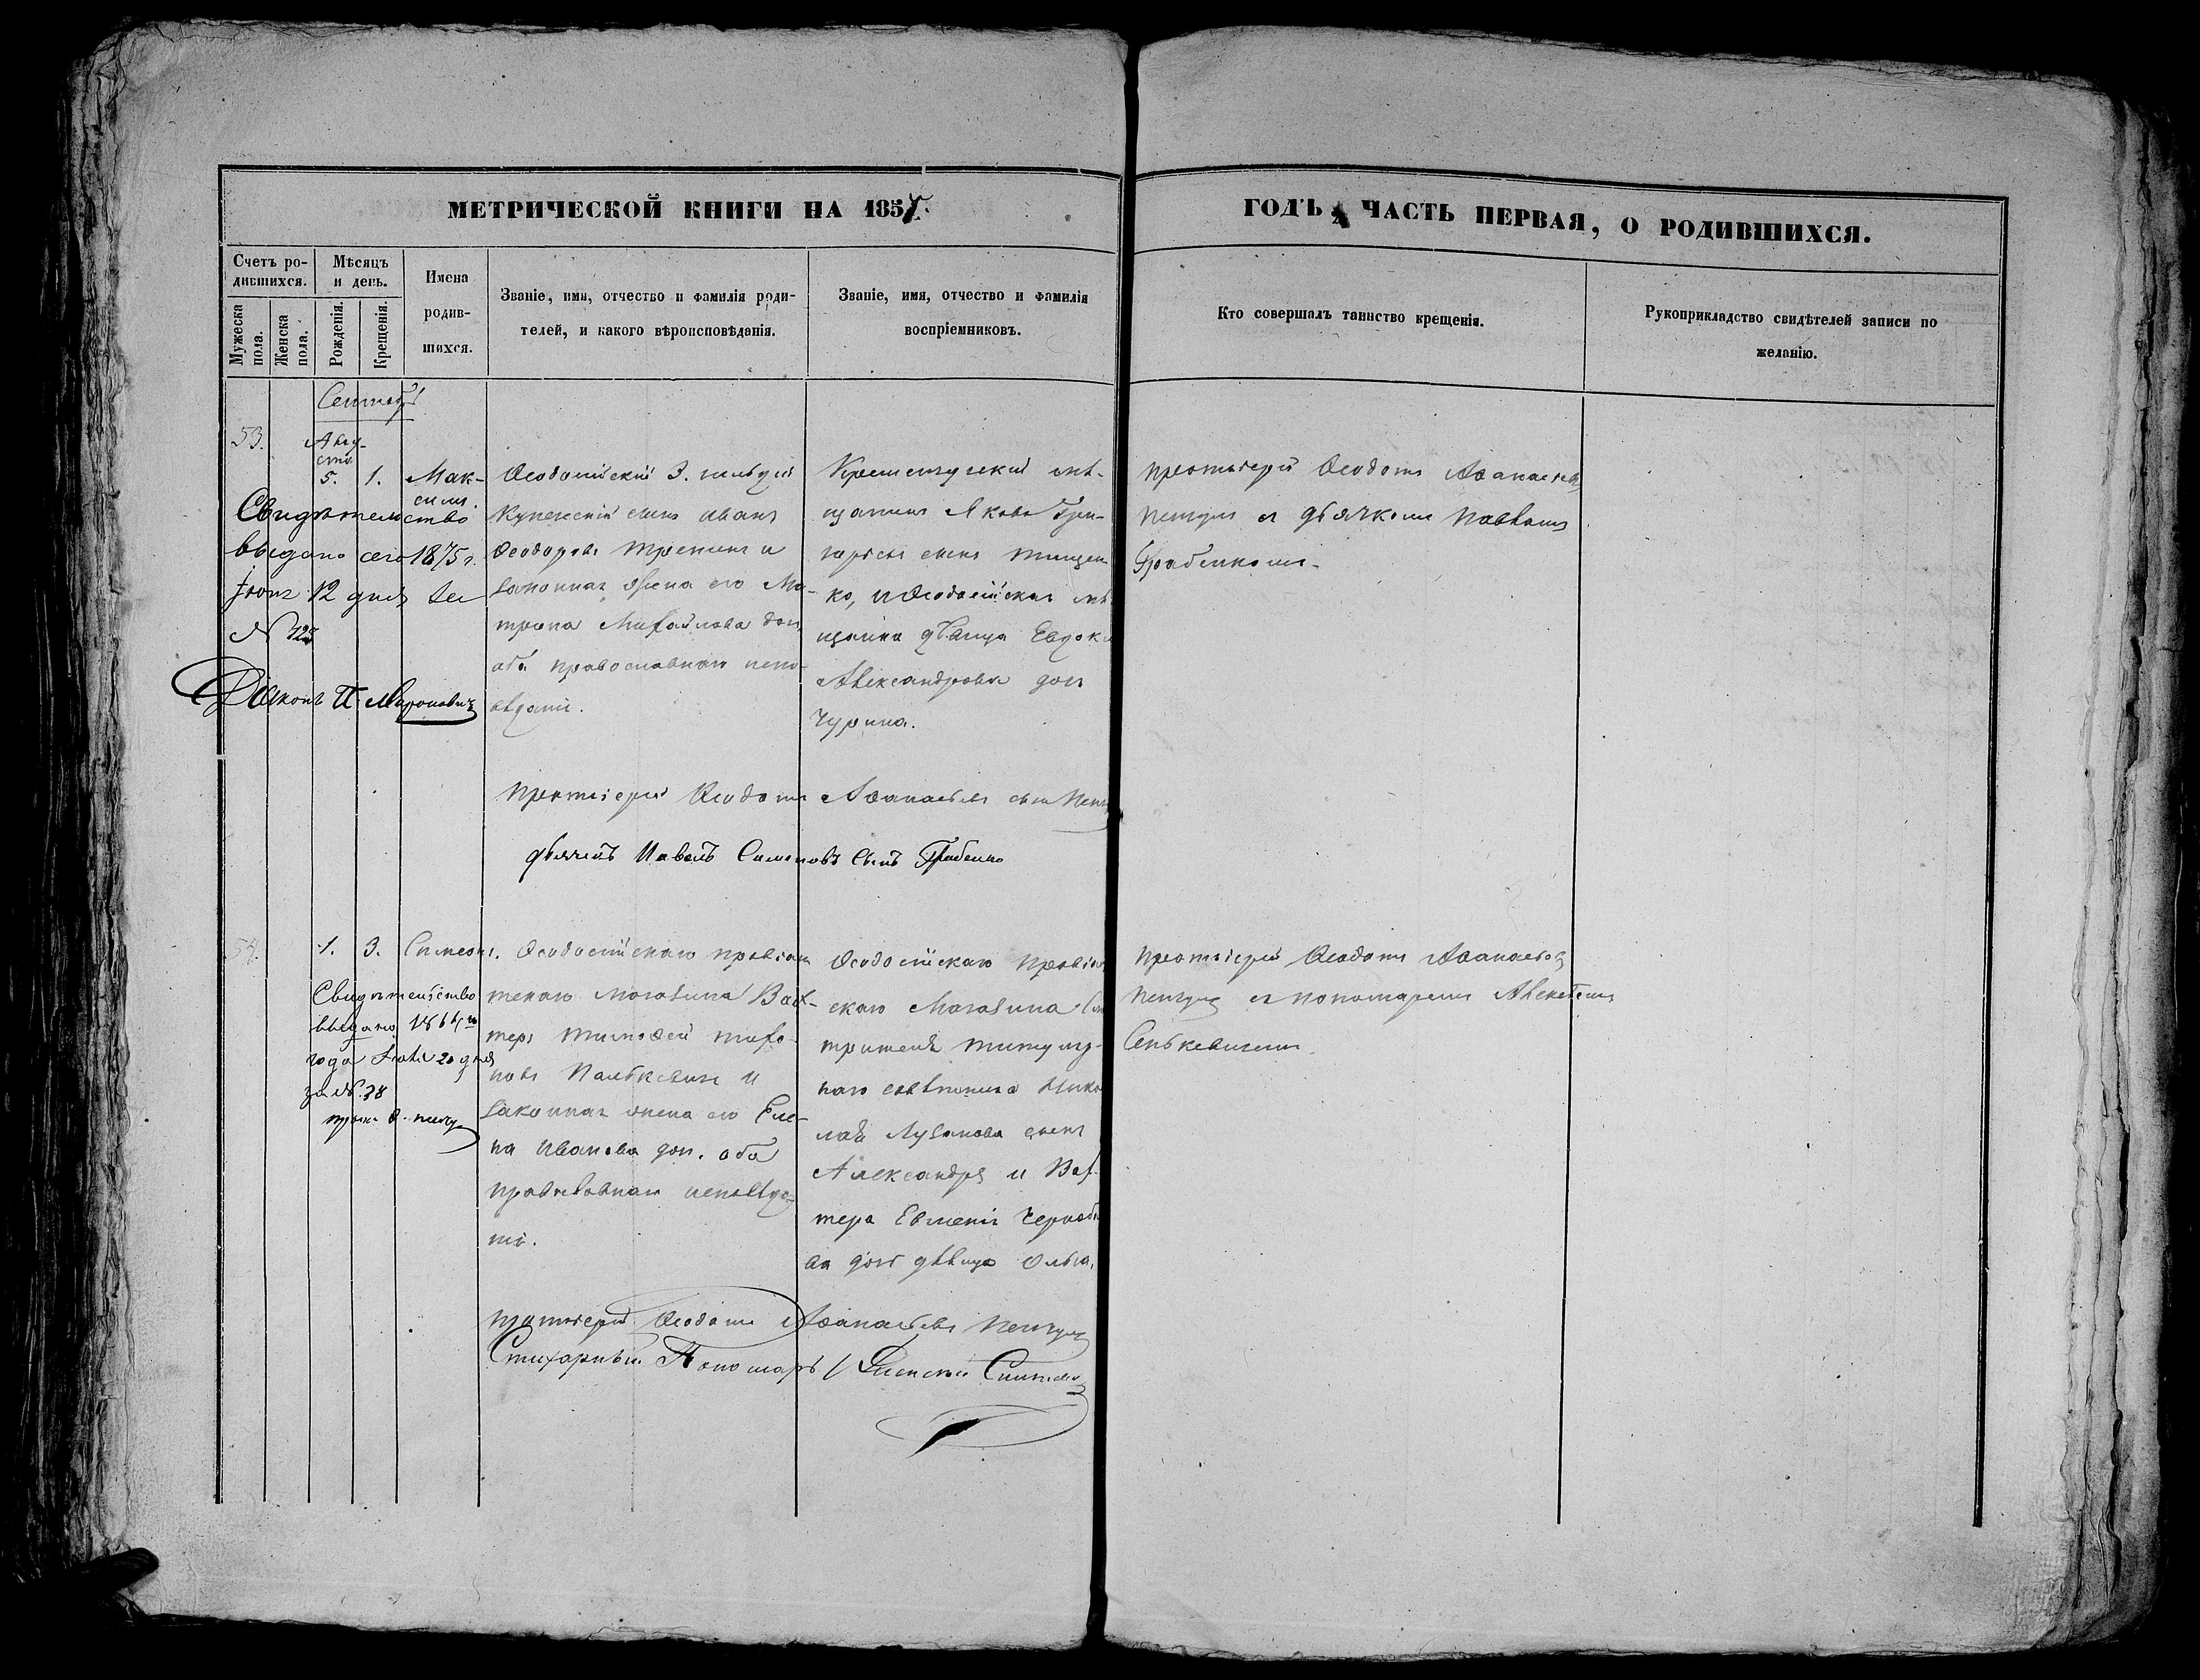 МЕТРИЧЕСКОЙ КНИГИ НА 1857.
ГОДЪ, ЧАСТЬ ПЕРВАЯ, О РОДИВШИХСЯ.
Счетъ ро-
дившихся.
Мѣсяцъ
и день.
Имена
родив-
шихся.
Званіе, имя, отчество и фамилія роди-
телей, и какого вѣроисповѣданія.
Званіе, имя, отчество и фамилія
воспріемниковъ.
Кто совершалъ таинство крещенія.
Рукоприкладство свидѣтелей записи по
желанію.
Мужеска
пола.
Женска
пола.
Рожденія.
Крещенія.
53.
Авгу-
ста
5.
1.
Мак-
симъ
Свидѣтельство
выдано сего 1875 г.
12 дня за
N 125
Діаконъ П. Мироновичъ
Ѳеодосійскій 3. гильдіи
Купеческій сынъ Иванъ
Ѳеодоровъ и
законная жена его Ма-
трона Михайлова доч
оба православнаго испо-
вѣданія.
Кременчугскій мѣ-
щанинъ Яковъ Гри-
горьевъ сынъ Тищен-
ко, и Ѳеодосійская мѣ-
щанка дѣвица Евдокі
Александрова дочь
Чурина.
Протоіерей Ѳеодотъ Аѳанасьевъ
съ дьячкомъ Павломъ
Грабенкомъ.
Протоіерей Ѳеодотъ Аѳанасьевъ сынъ
дьячекъ Павелъ Симеоновъ сынъ Грабенко
54.
1.
3.
Симеонъ.
Свидѣтельство
выдано 1864 го
года 20 дня
за №. 38
Ѳеодосійскаго провіан
тскаго Магазина Вах-
теръ Тимоѳей Тихо-
новъ и
законная жена его Еле-
на Иванова доч. оба
православнаго исповѣда-
нія.
Ѳеодосійскаго Провіан
скаго Магазина См
трителя титуляр-
наго совѣтника Нико
лая Лузанова сынъ
Александръ и Вах-
тера Евгенія
ва дочь дѣвица Ольга.
Протоіерей Ѳеодотъ Аѳанасьевъ
съ пономаремъ Алексѣемъ
Сенькевичемъ.
Протоіерей Ѳеодотъ Аѳанасьевъ
Стихарный Пономарь